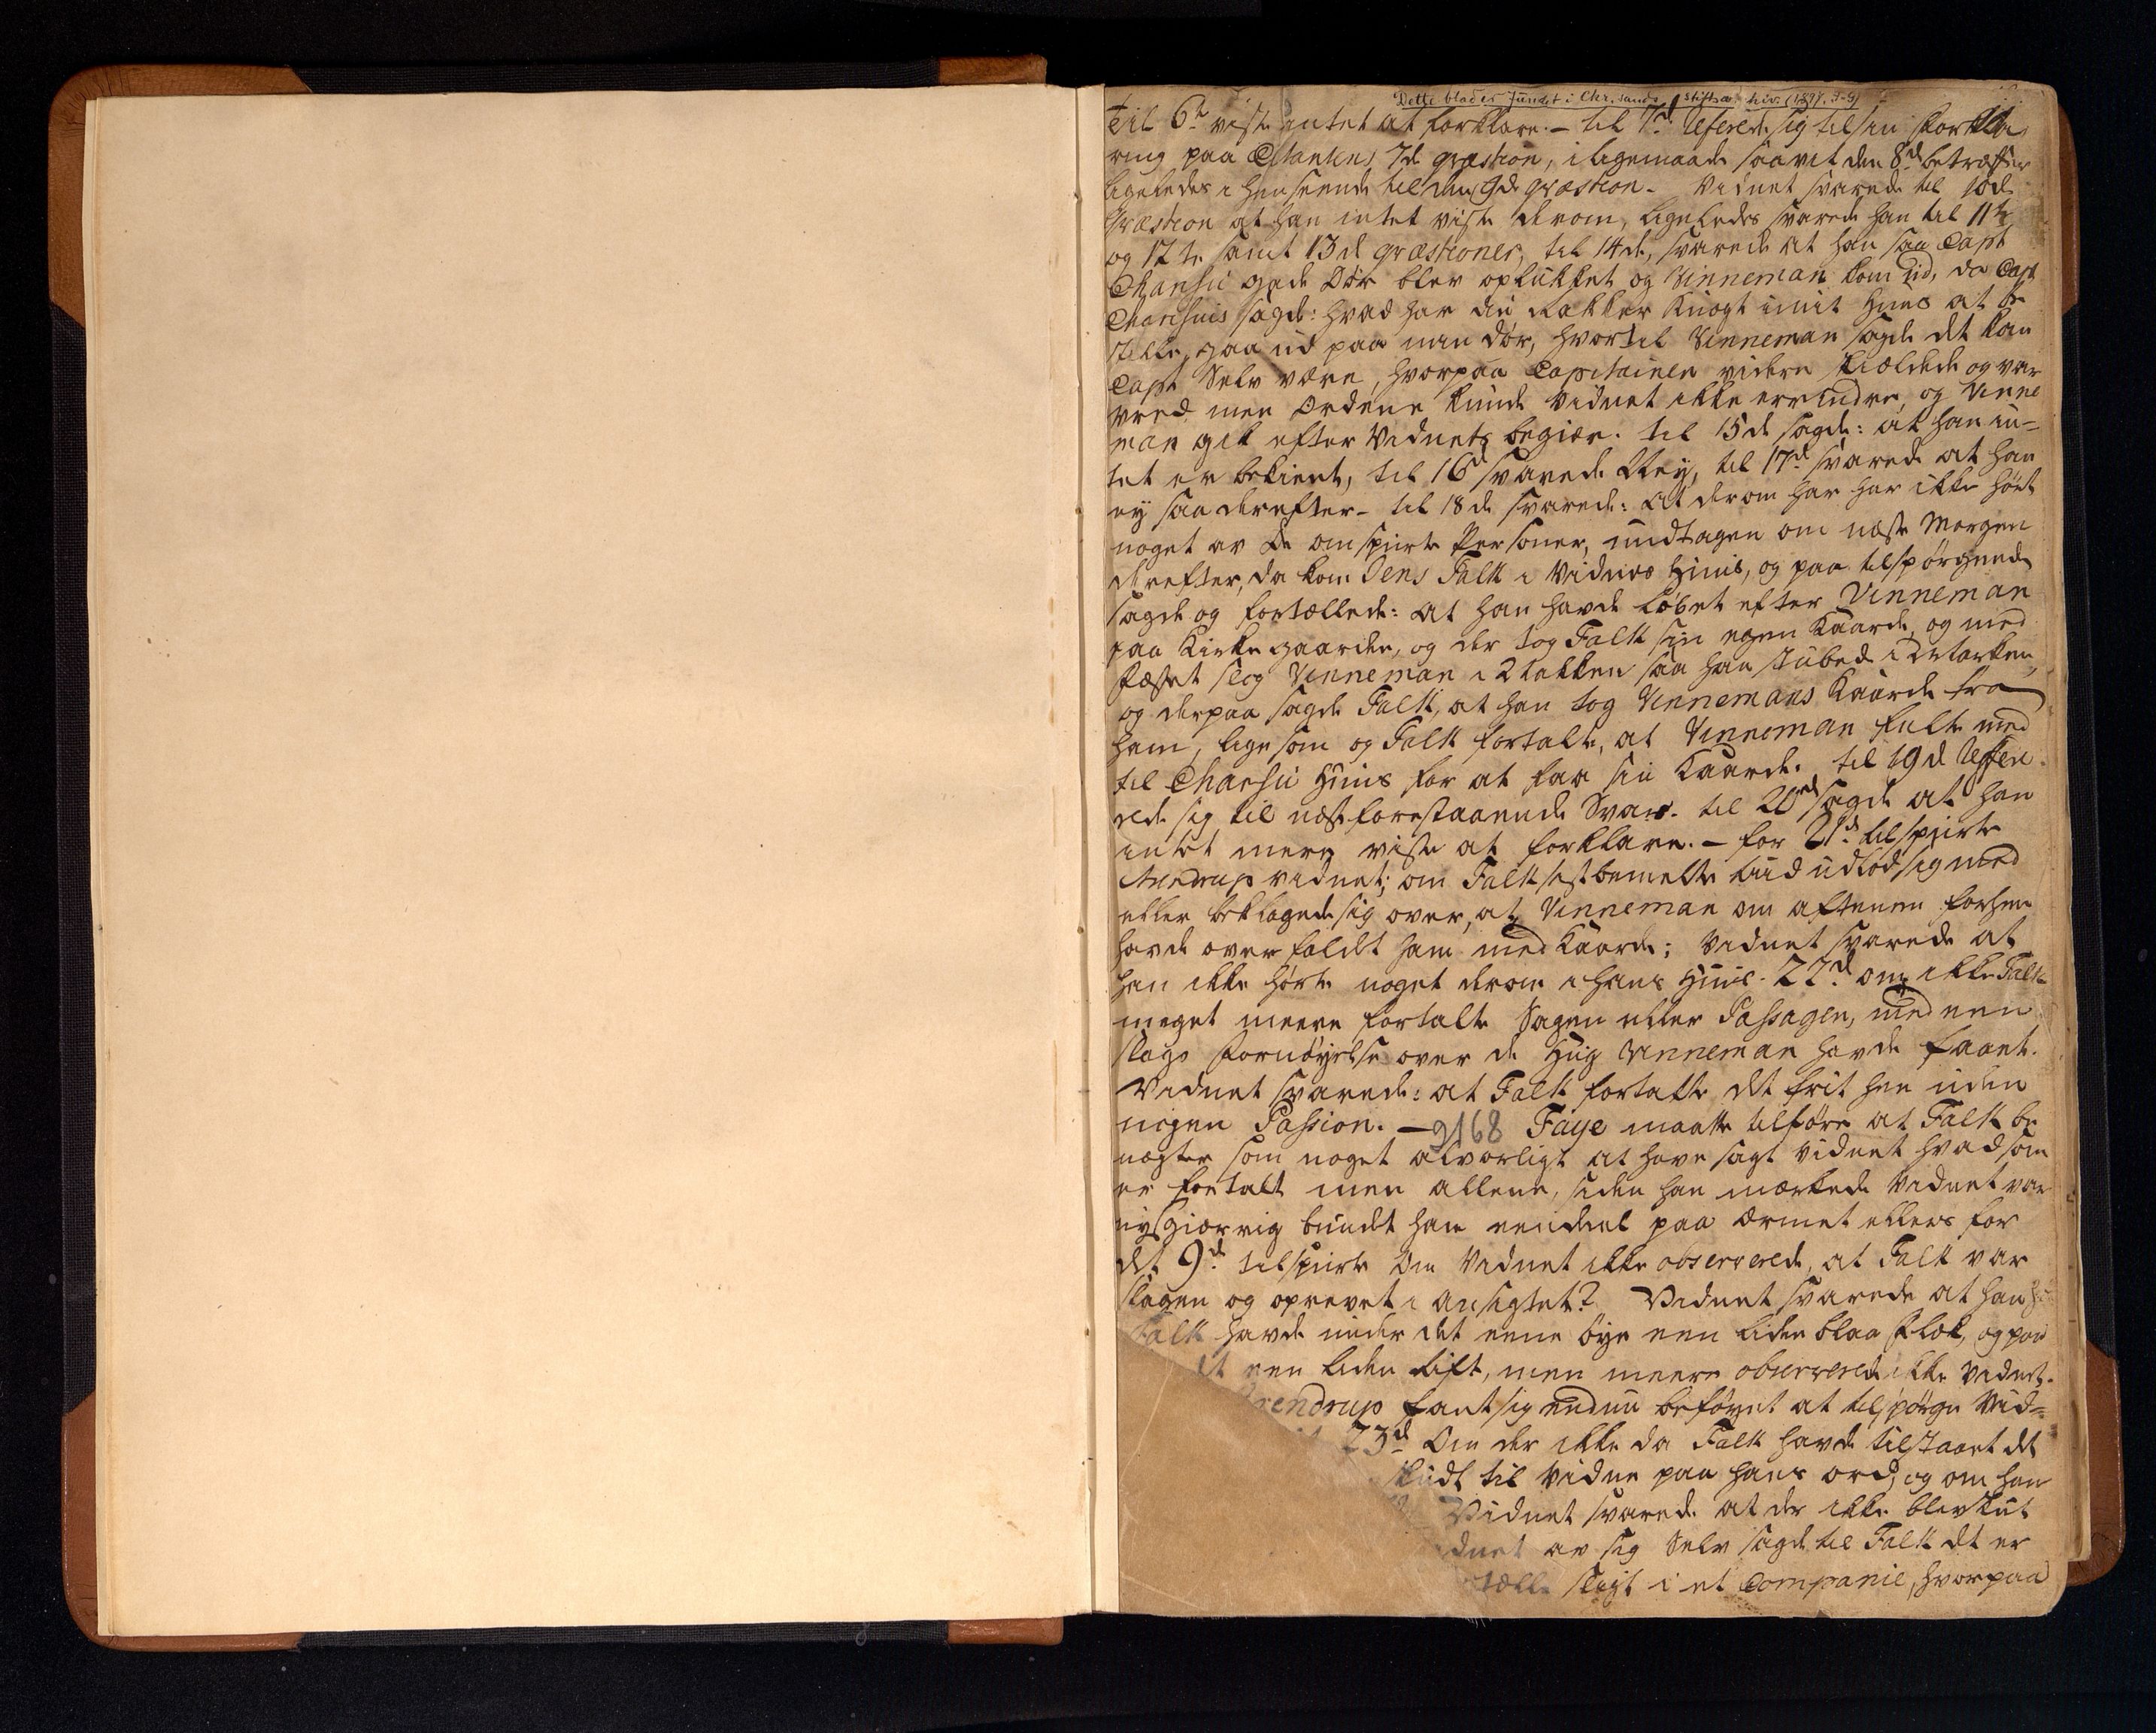 Dette blad er fundet i Chr.sands stiftsarkiv (1897. J-S)
til 6te viste intet at forklare. – til 7d. refererede sig til sin forkla
ring paa Actantens 7de qvæstion, iligemaade saavit den 8d. betræffer
ligeledes i henseende til den 9de qvæstion. Vidnet svarede til 10de
qvæstion at han intet viste derom, ligeledes svarede han til 11te
og 12te samt 13de qvæstioner, til 14de, svarede at han saa Capt
Charisii gade Dør blev oplukket og Vinneman kom ud, da Capt
Charisius sagde: hvad har du Rakker Knegt i mit Huus at be
stille, gaa ud paa min Dør, hvortil Vinneman sagde det kan
Capt Selv være, hvorpaa Capitainen videre skieldede og var
vred men Ordene kunde Vidnet ikke erindre, og Vinne
man gik efter Vidnets begier. til 15de sagde: at han in-
tet er bekient, til 16d svarede Ney, til 17d svarede at han
ey saa derefter – til 18de svarede: at derom har han ikke hørt
noget av de omspurte Personer, undtagen om næste Morgen
derefter, da kom Jens Falk i Vidnes Huus, og paa tilspørgende
sagde og fortællede: at han havde løbet efter Vinneman
paa Kirkegaarden, og der tog Falk sin egen Kaarde, og med
Fæstet slog Vinneman i Nakken saa han stubede i Marken,
og derpaa sagde Falk, at han tog Vinnemans Kaarde fra
ham, lige som og Falk fortalte, at Vinneman fulte med
til Charisii Huus for at faa sin Kaarde. til 19d Refere-
rede sig til næstforestaaende Svar. til 20d sagde at han
intet mere viste at forklare. – for 21d. tilspurte
Arendrup vidnet; om Falk sidstbemelte tiid udlod sig med
eller beklagede sig over, at Vinneman om aftenen forhen
havde overfaldet ham med Kaarde; Vidnet svarede at
han ikke hørte noget derom i hans Huus. 22d. om ikke Falk
meget meere fortalte Sagen eller Passagen, med een
slags fornøyelse over de Hug Vinneman havde faaet.
Vidnet svarede: at Falk fortalte det frit hen uden
nogen Passion. – 9168 Faye maatte tilføre at Falk be
nægter som noget alvorligt at have sagt vidnet hvad som
er fortalt men allene, siden han mærkede Vidnet var
nysgierrig bundt han eendeel paa Ærmet ellers for
det 9d. tilspurte Om Vidnet ikke observerede, at Falk var
slagen og oprevet i Ansigtet? Vidnet svarede at han
Falk havde under det eene øye een liden blaa Flek, og paa
det een liden Rift, men meere observerede ikke Vidnet.
Arendrup fant sig endnu beføyet at tilspørge Vid-
23d Om der ikke da Falk havde tilstaaet det
skudt til Vidne paa hans ord, og om han
Vidnet svarede at der ikke blev skut
idnet av sig Selv sagde til Falk det er
tælle sligt i et Companie, hvorpaa